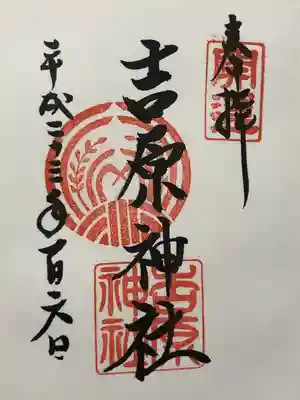 奉拝
吉原神社
平成二三年一月六日
吉原
神社